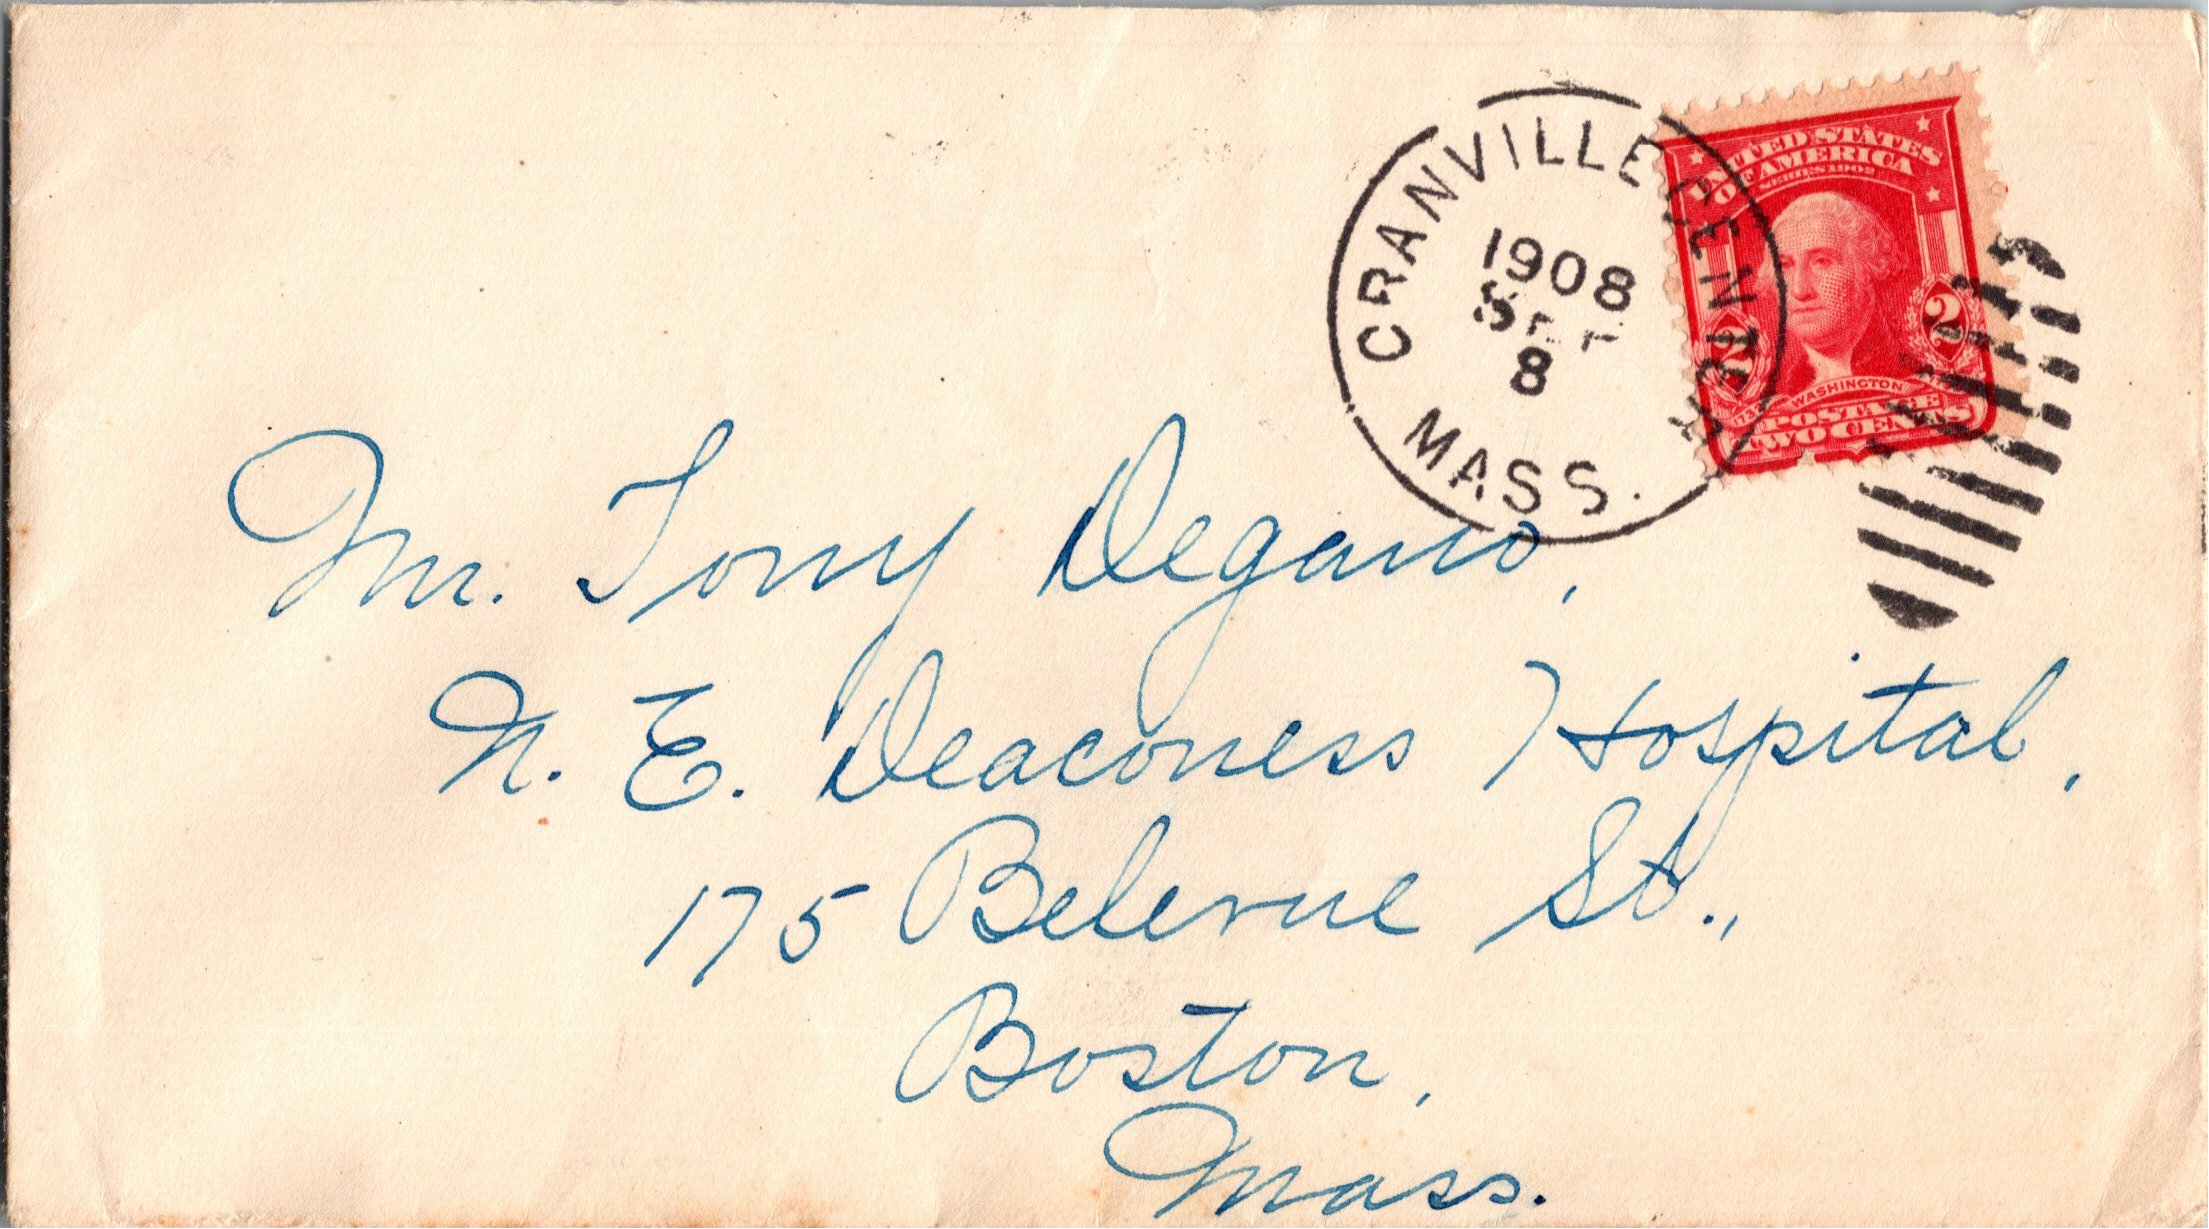 CRANVILLE CENTER
1908
SEP
8
MASS.
UNITED STATES
OF AMERICA
SERIES 1902
2 2
WASHINGTON
POSTAGE
TWO CENTS
Mr. Tony Degano,
N. E. Deaconess Hospital,
175 Belevue St.,
Boston,
Mass.